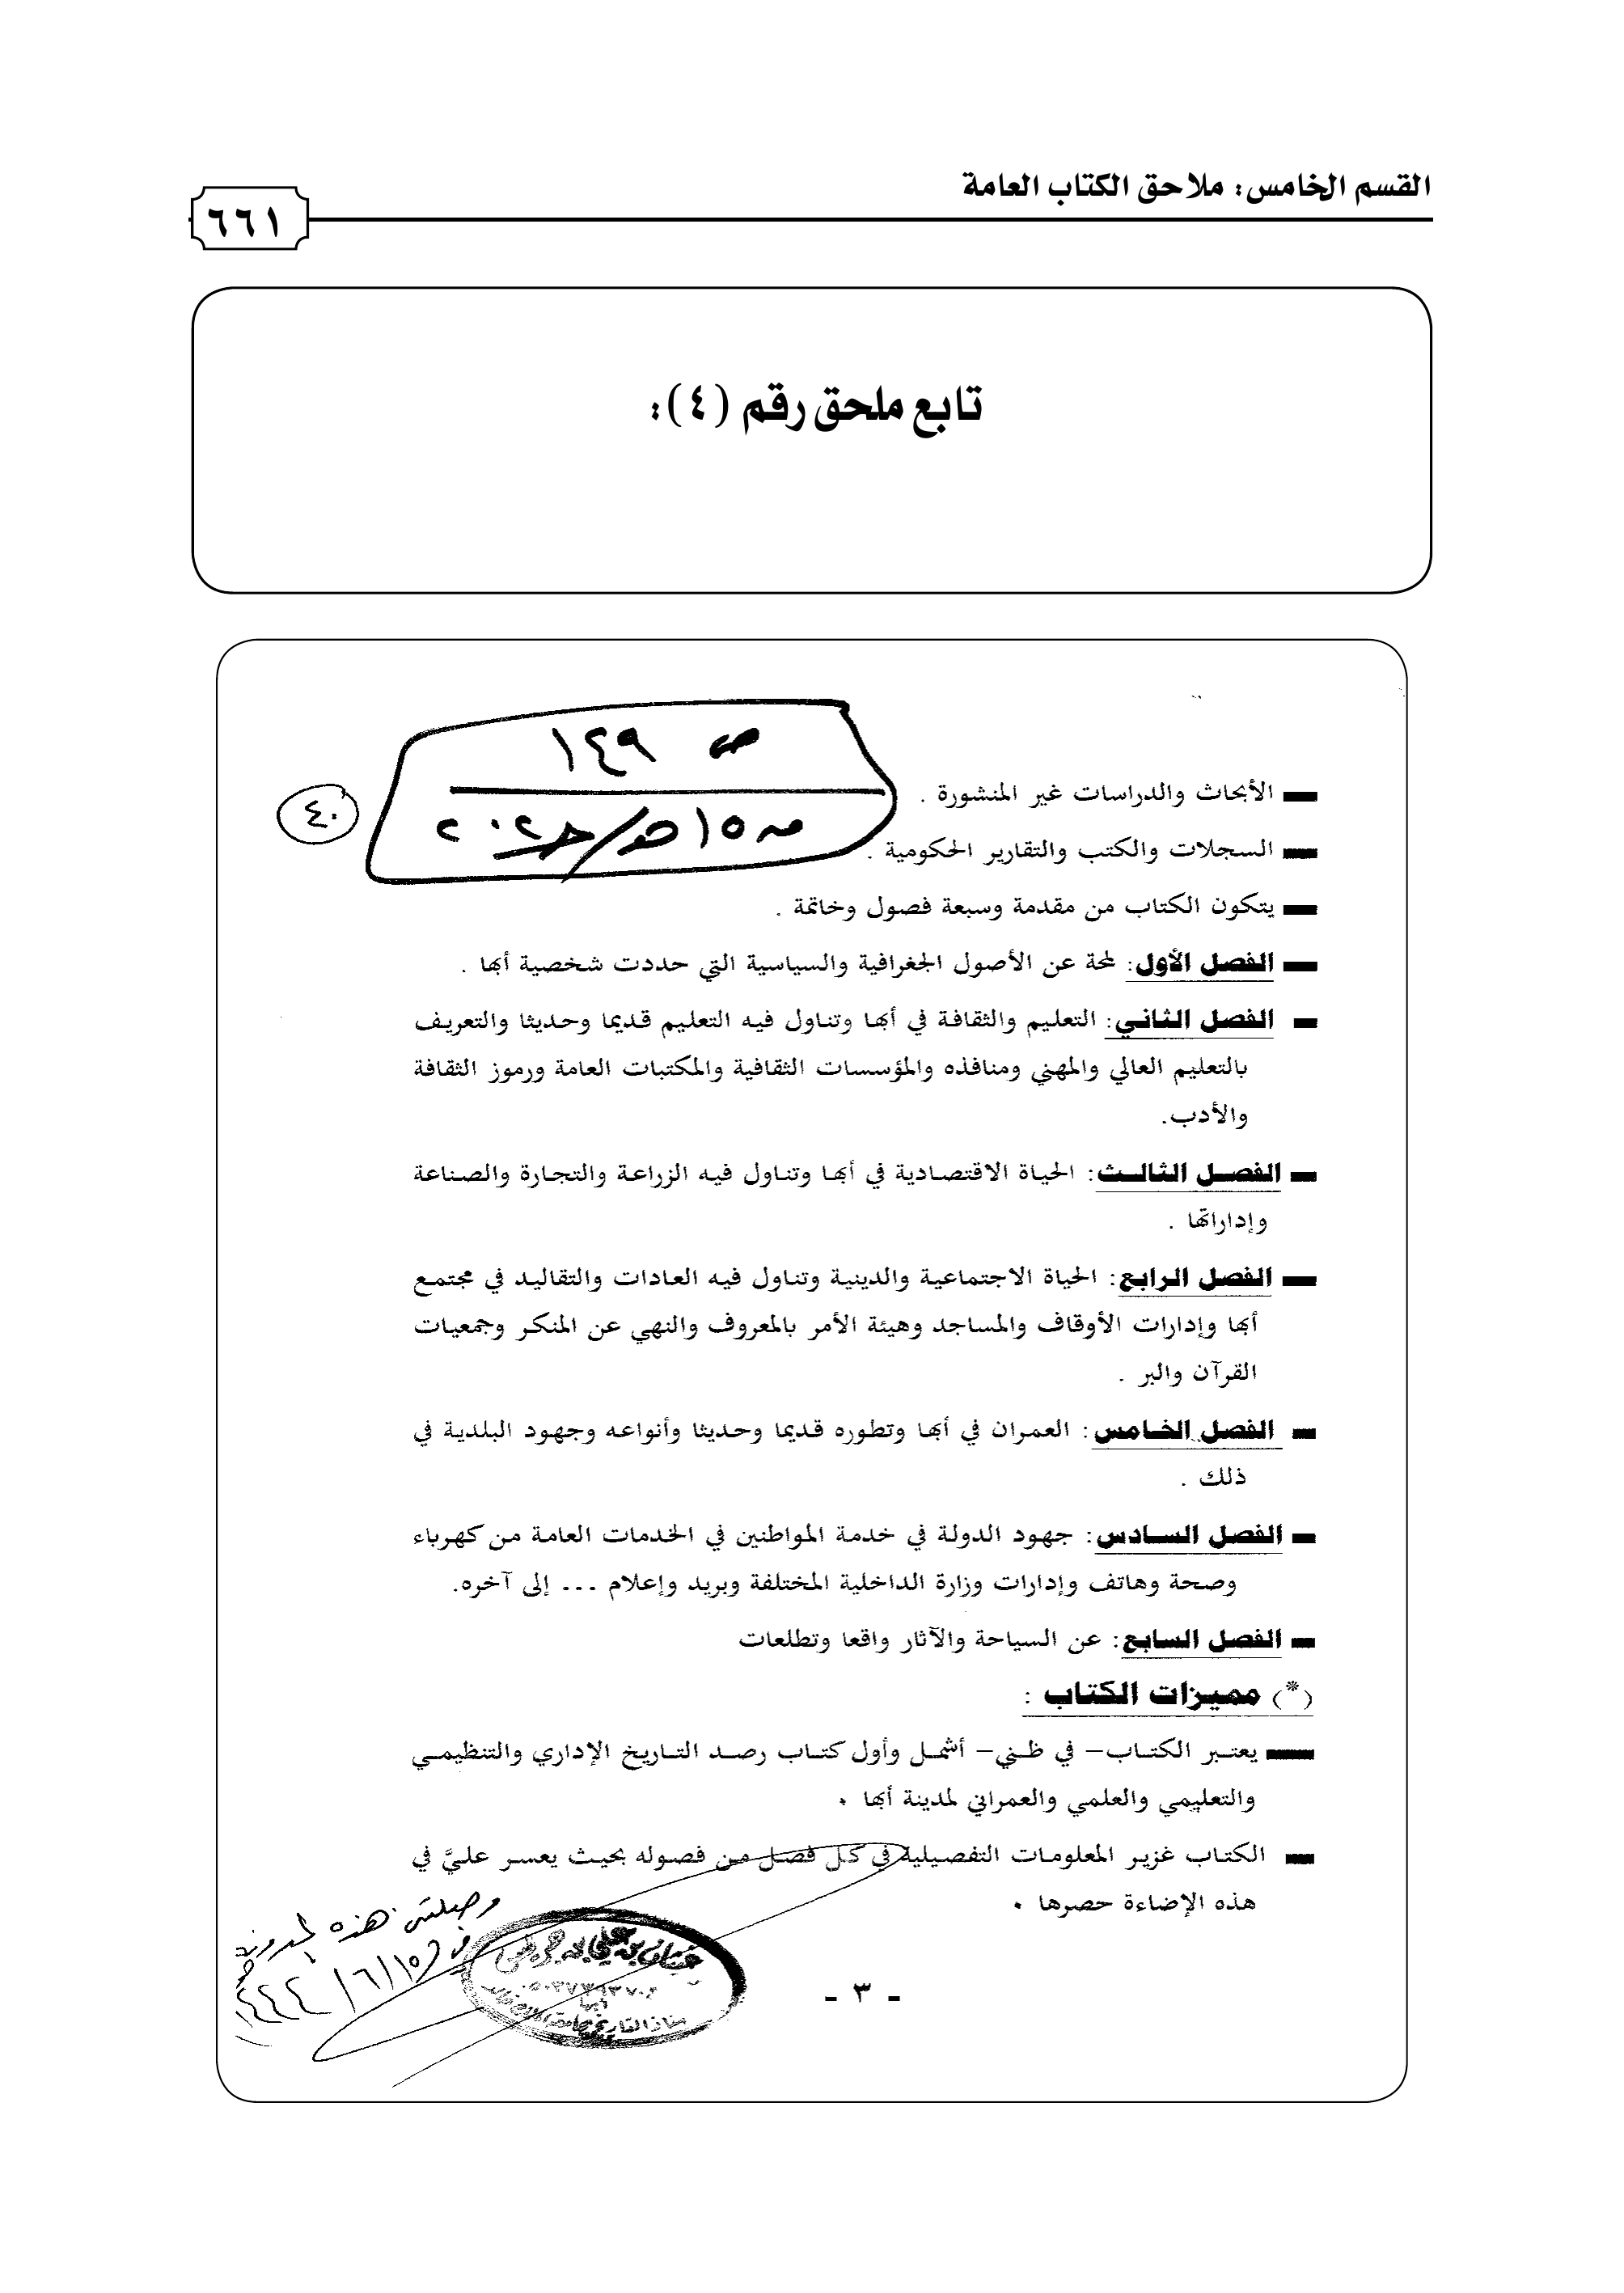 القسم الخامس: ملاحق الكتاب العامة
٦٦١
تابع ملحق رقم (٤):
ص ١٤٩
٤٠
- الأبحاث والدراسات غير المنشورة .
- السجلات والكتب والتقارير الحكومية .
- يتكون الكتاب من مقدمة وسبعة فصول وخاتمة .
- الفصل الأول: لمحة عن الأصول الجغرافية والسياسية التي حددت شخصية أبها .
- الفصل الثاني: التعليم والثقافة في أبها وتناول فيه التعليم قديما وحديثا والتعريف
بالتعليم العالي والمهني ومنافذه والمؤسسات الثقافية والمكتبات العامة ورموز الثقافة
والأدب.
- الفصل الثالث: الحياة الاقتصادية في أبها وتناول فيه الزراعة والتجارة والصناعة
وإداراتها .
- الفصل الرابع: الحياة الاجتماعية والدينية وتناول فيه العادات والتقاليد في مجتمع
أبها وإدارات الأوقاف والمساجد وهيئة الأمر بالمعروف والنهي عن المنكر وجمعيات
القرآن والبر .
- الفصل الخامس: العمران في أبها وتطوره قديما وحديثا وأنواعه وجهود البلدية في
ذلك .
- الفصل السادس: جهود الدولة في خدمة المواطنين في الخدمات العامة من كهرباء
وصحة وهاتف وإدارات وزارة الداخلية المختلفة وبريد وإعلام ... إلى آخره.
- الفصل السابع: عن السياحة والآثار واقعا وتطلعات
(*) مميزات الكتاب :
- يعتبر الكتاب- في ظني- أشمل وأول كتاب رصد التاريخ الإداري والتنظيمي
والتعليمي والعلمي والعمراني لمدينة أبها .
- الكتاب غزير المعلومات التفصيلية في كل فصل من فصوله بحيث يعسر عليَّ في
هذه الإضاءة حصرها .
وصلتني هذه المدونة
في ١٥/٦/١٤٤٢
- ٣ -